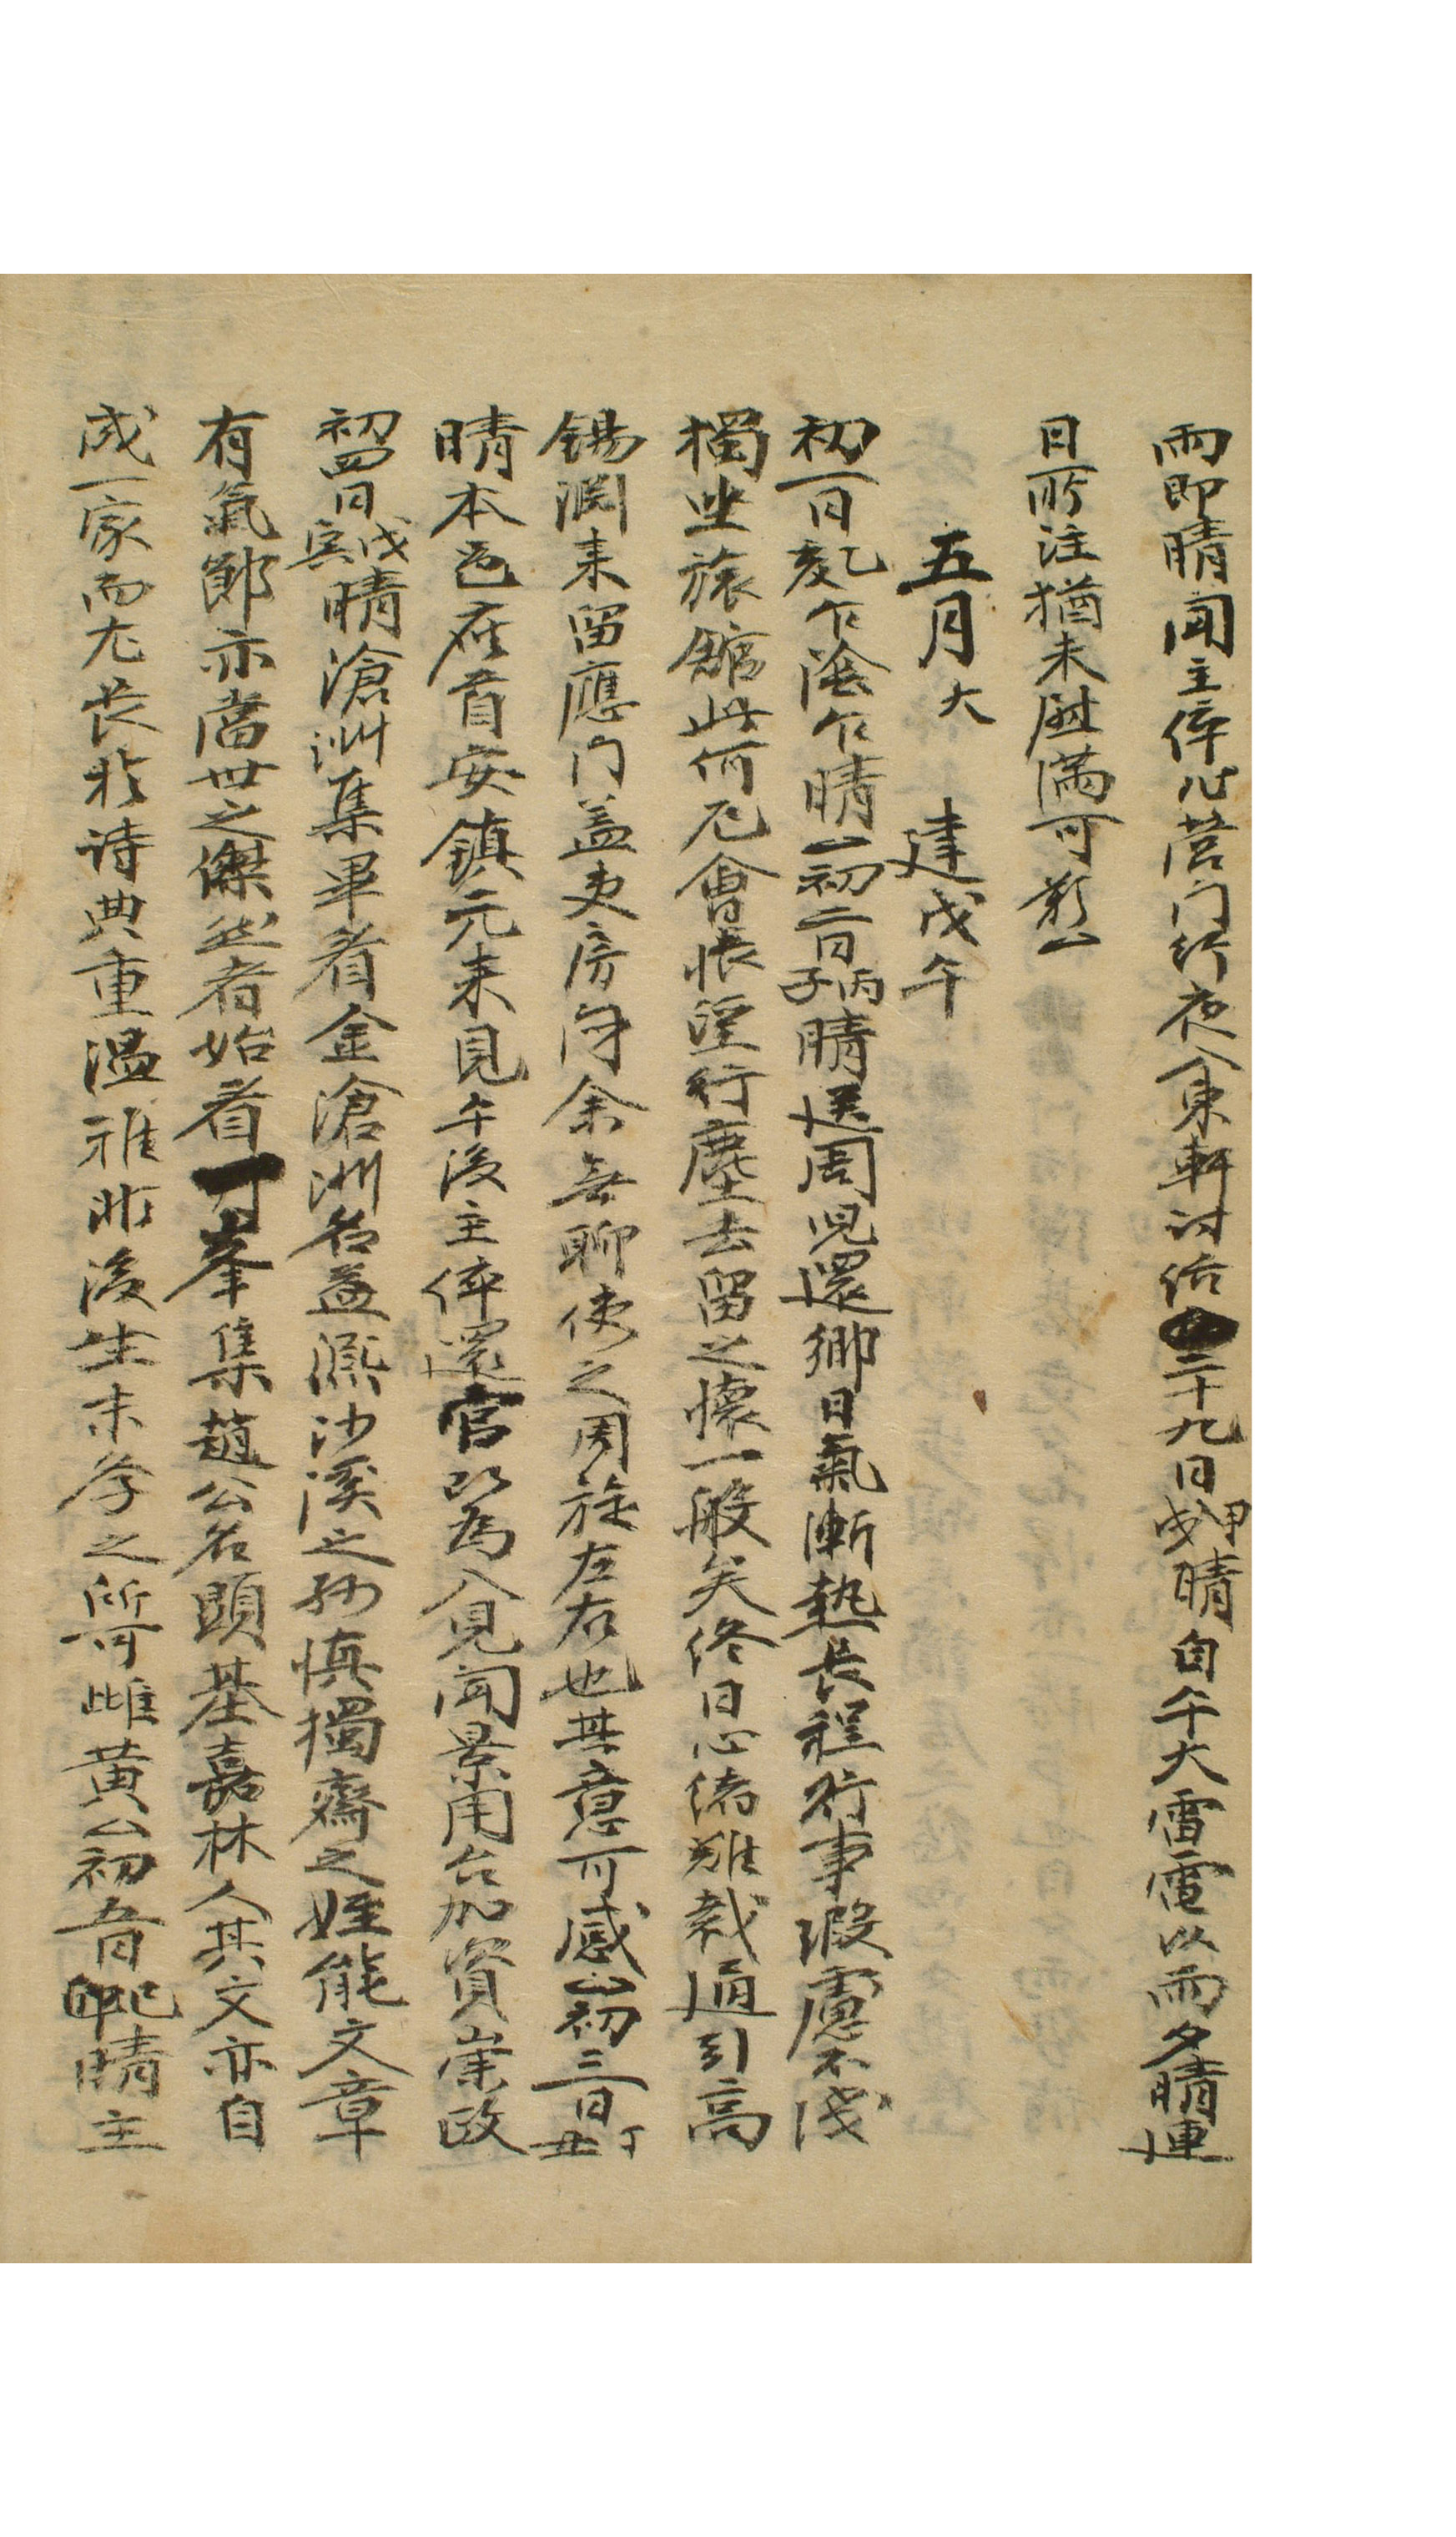 雨即晴聞主倅作營門行夜入東軒討話二十九日甲戌晴自午大雷電以雨夕晴連
日所注猶未慰滿可歎
五月大 建戊午
初一日乙亥乍陰乍晴初二日丙子晴送周児還鄉日氣漸熱長程行事瑕慮不浅
獨坐旅舘此何危會悵望行塵去留之懷一般矣終日心緒難裁通引高
錫渊来留應门盖吏房閔余無聊使之周旋左右也其意可感初三日丁丑
晴本邑座首安鎮元来見午後主倅還官以為入見聞景用台加資崇政
初四日戊寅晴滄洲集畢看金滄洲名益凞沙溪之孫慎獨齋之姪能文章
有氣節亦當世之傑然者始看峯集趙公名頤基嘉林人其文亦自
成一家而尤長於詩典重温雅非後生末學之所可雌黄初五日己卯晴主